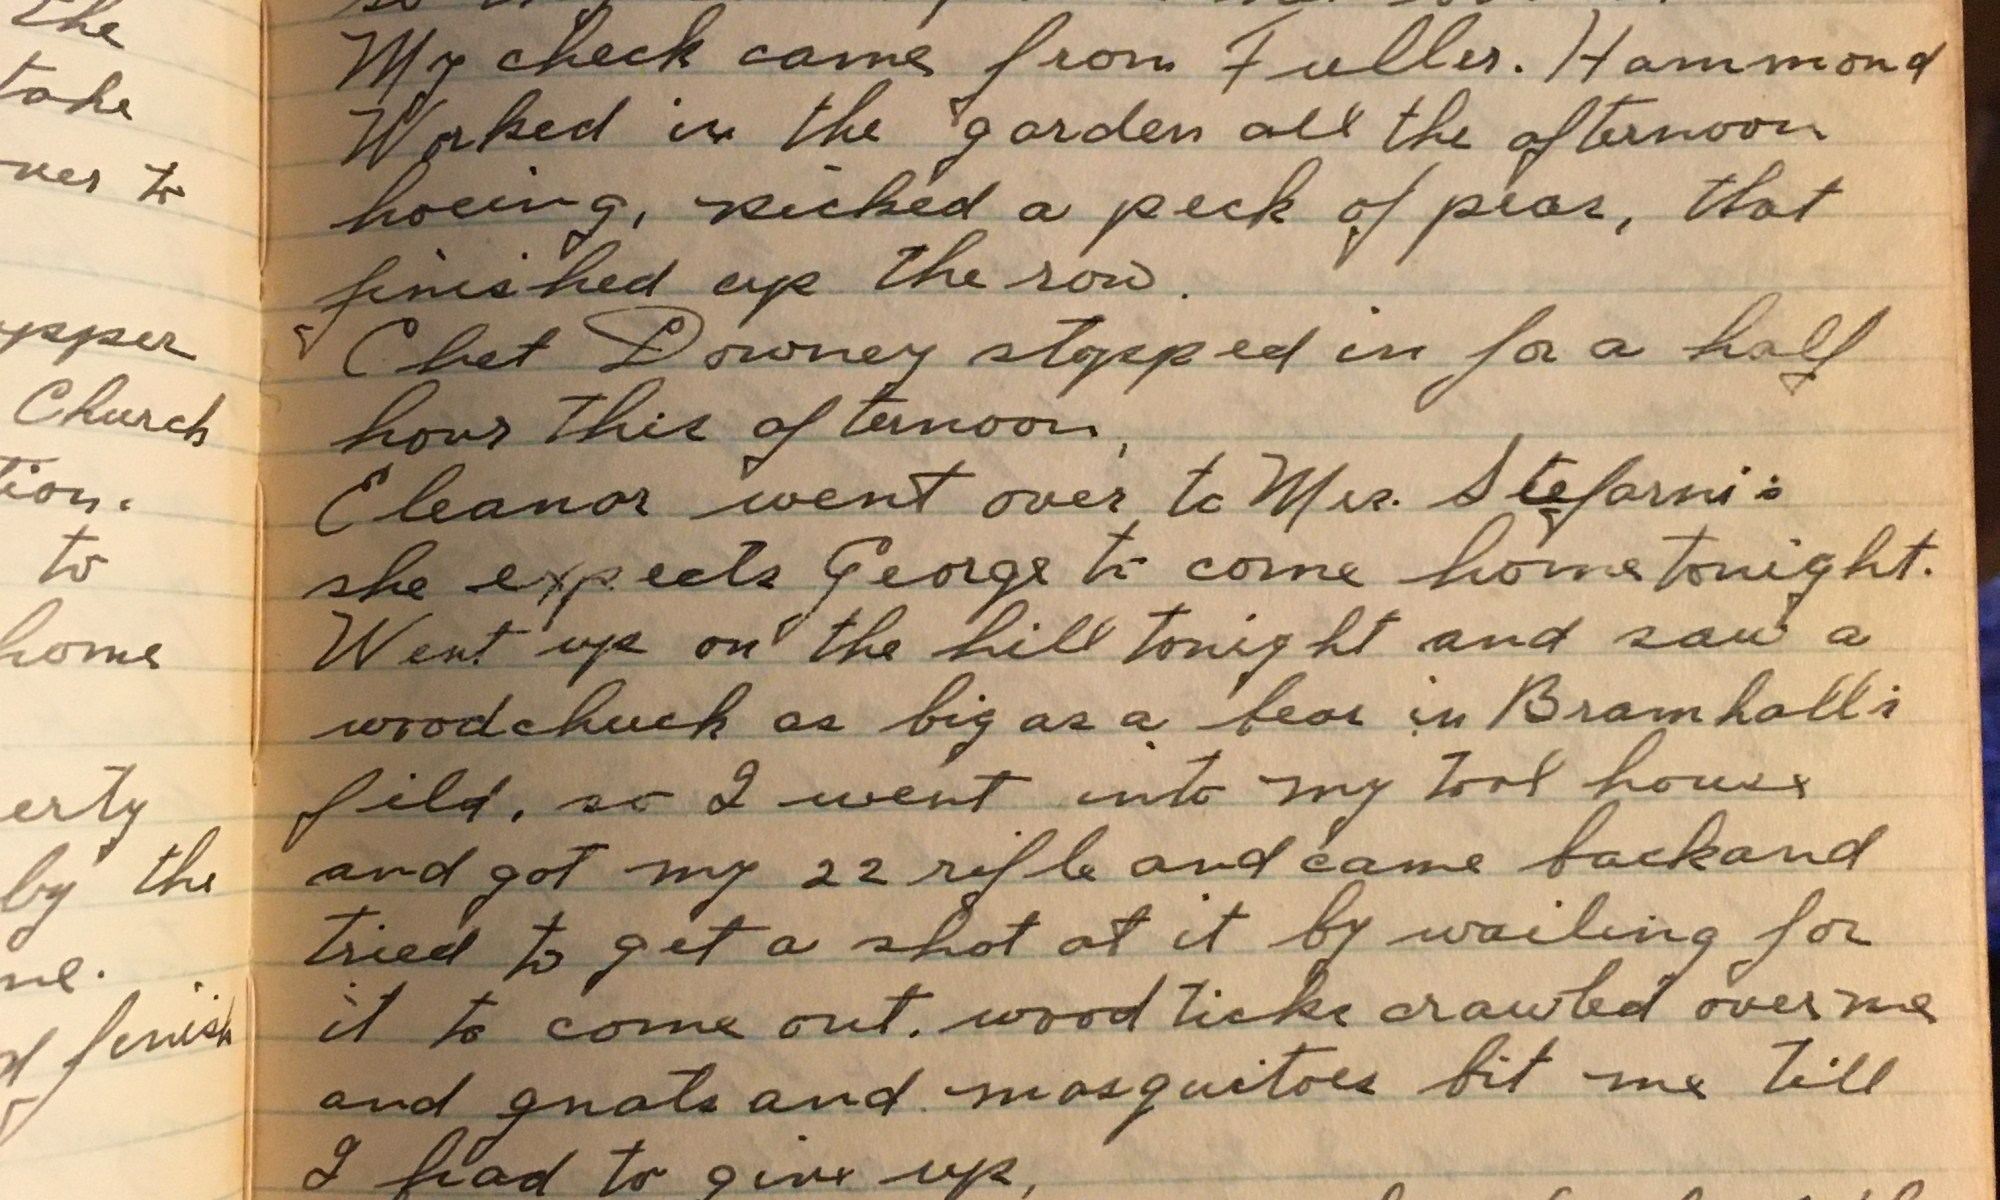 the
take
ver to
upper
Church
tion.
to
home
erty
by the
me.
d finish
My check came from Fuller. Hammond
Worked in the garden all the afternoon
hoeing, picked a peck of peas, that
finished up the row.
Chet Downey stopped in for a half
hour this afternoon,
Eleanor went over to Mrs. Stefarni's
she expects George to come home tonight.
Went up on the hill tonight and saw a
woodchuck as big as a bear in Bramhall's
fild, so I went into my tool house
and got my 22 rifle and came back and
tried to get a shot at it by waiting for
it to come out. wood ticks crawled over me
and gnats and mosquitoes bit me till
I had to give up,